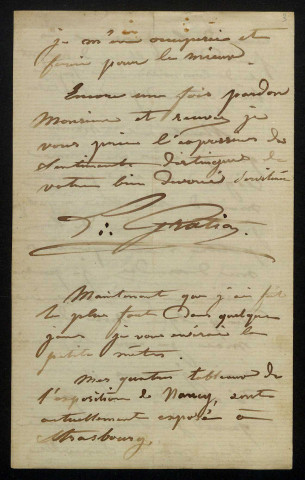 3
je m'en occuperai et
ferai pour le mieux.
Encore une fois pardon
Monsieur et recevez je
vous prie l'expression de
sentiments distingués de
votre bien dévoué serviteur
Gratia.
Maintenant que j'ai fait
le plus fort dans quelques
jours je vous enverrai les
petites notes.
Mes quatre tableaux de
l'exposition de Nancy, sont
actuellement exposés à
Strasbourg.